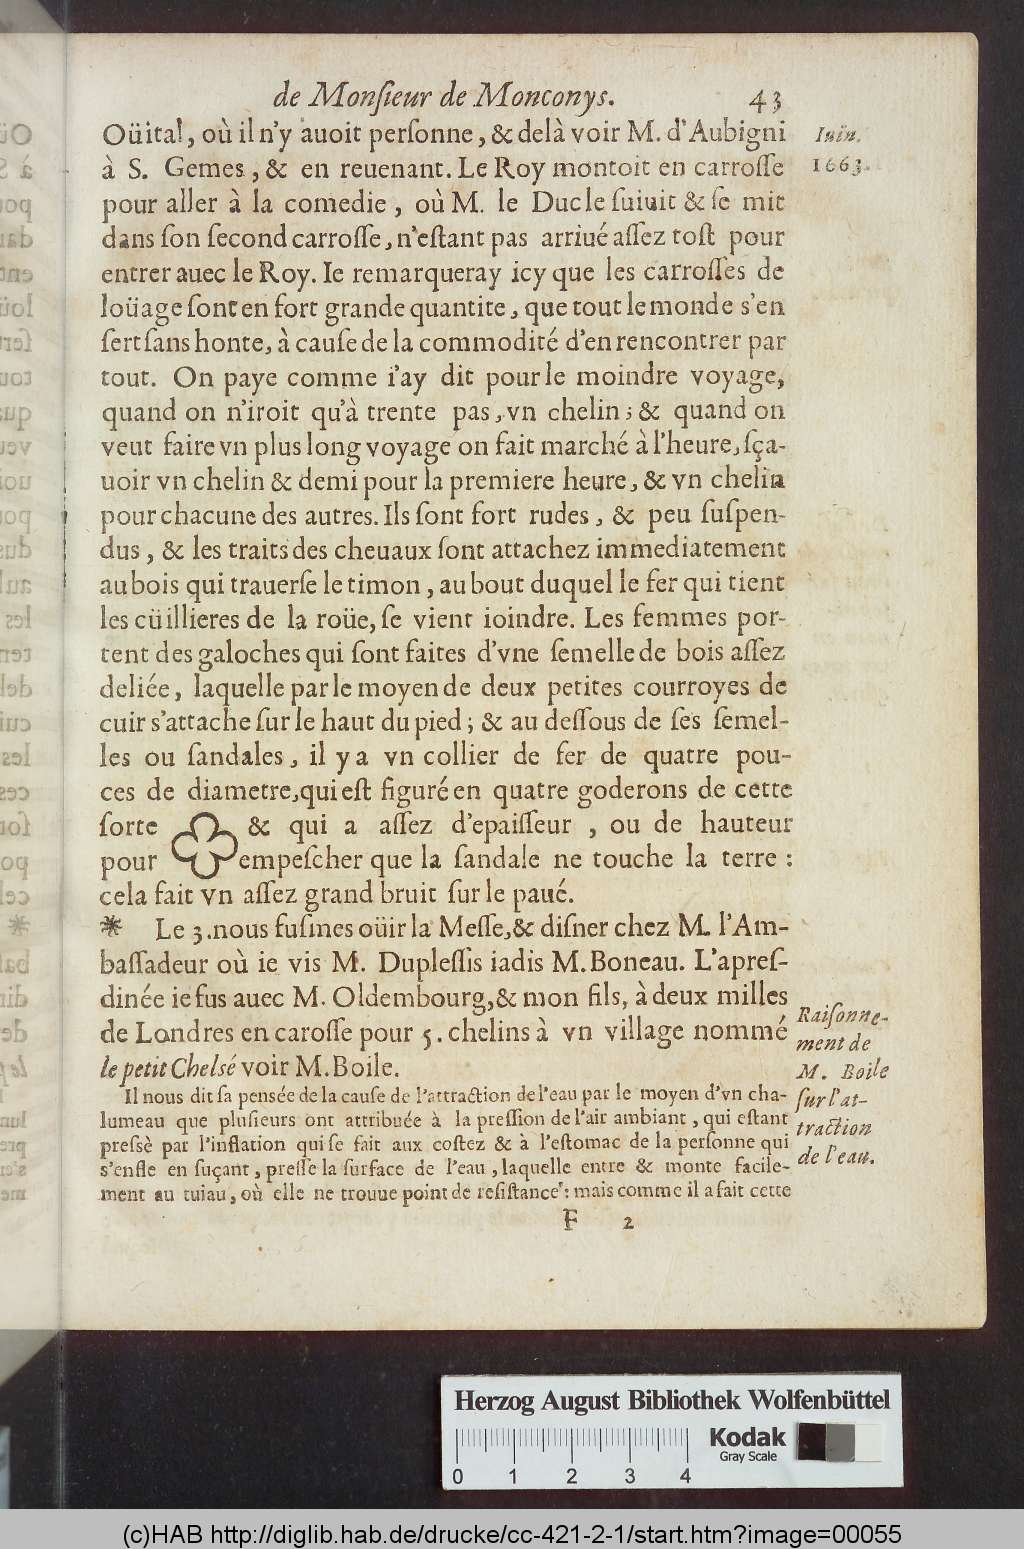 de Monſieur de Monconys. 43
Oüital, où il n'y auoit perſonne, & delà voir M. d'Aubigni
à S. Gemes, & en reuenant. Le Roy montoit en carroſſe
pour aller à la comedie, où M. le Duc le ſuiuit & ſe mit
dans ſon ſecond carroſſe, n'eſtant pas arriué aſſez toſt pour
entrer auec le Roy. Ie remarqueray icy que les carroſſes de
loüage ſont en fort grande quantite, que tout le monde s'en
ſert ſans honte, à cauſe de la commodité d'en rencontrer par
tout. On paye comme i'ay dit pour le moindre voyage,
quand on n'iroit qu'à trente pas, vn chelin; & quand on
veut faire vn plus long voyage on fait marché à l'heure, ſça-
uoir vn chelin & demi pour la premiere heure, & vn chelin
pour chacune des autres. Ils ſont fort rudes, & peu ſuſpen-
dus, & les traits des cheuaux ſont attachez immediatement
au bois qui trauerſe le timon, au bout duquel le fer qui tient
les cüillieres de la roüe, ſe vient ioindre. Les femmes por-
tent des galoches qui ſont faites d'vne ſemelle de bois aſſez
deliée, laquelle par le moyen de deux petites courroyes de
cuir s'attache ſur le haut du pied; & au deſſous de ſes ſemel-
les ou ſandales, il y a vn collier de fer de quatre pou-
ces de diametre, qui eſt figuré en quatre goderons de cette
ſorte & qui a aſſez d'epaiſſeur, ou de hauteur
pour empeſcher que la ſandale ne touche la terre :
cela fait vn aſſez grand bruit ſur le paué.
* Le 3. nous fuſmes oüir la Meſſe, & diſner chez M. l'Am-
baſſadeur où ie vis M. Dupleſſis iadis M. Boneau. L'apreſ-
dinée ie fus auec M. Oldembourg, & mon fils, à deux milles
de Londres en caroſſe pour 5. chelins à vn village nommé
le petit Chelsé voir M. Boile.
Il nous dit ſa pensée de la cauſe de l'attraction de l'eau par le moyen d'vn cha-
lumeau que pluſieurs ont attribuée à la preſſion de l'air ambiant, qui eſtant
preſſè par l'inflation qui ſe fait aux coſtez & à l'eſtomac de la perſonne qui
s'enfle en ſuçant, preſſe la ſurface de l'eau, laquelle entre & monte facile-
ment au tuiau, où elle ne trouue point de reſiſtance : mais comme il a fait cette
F 2
Iuin.
1663.
Raiſonne-
ment de
M. Boile
ſur l'at-
traction
de l'eau.
Herzog August Bibliothek Wolfenbüttel
Kodak
Gray Scale
0 1 2 3 4
(c)HAB http://diglib.hab.de/drucke/cc-421-2-1/start.htm?image=00055